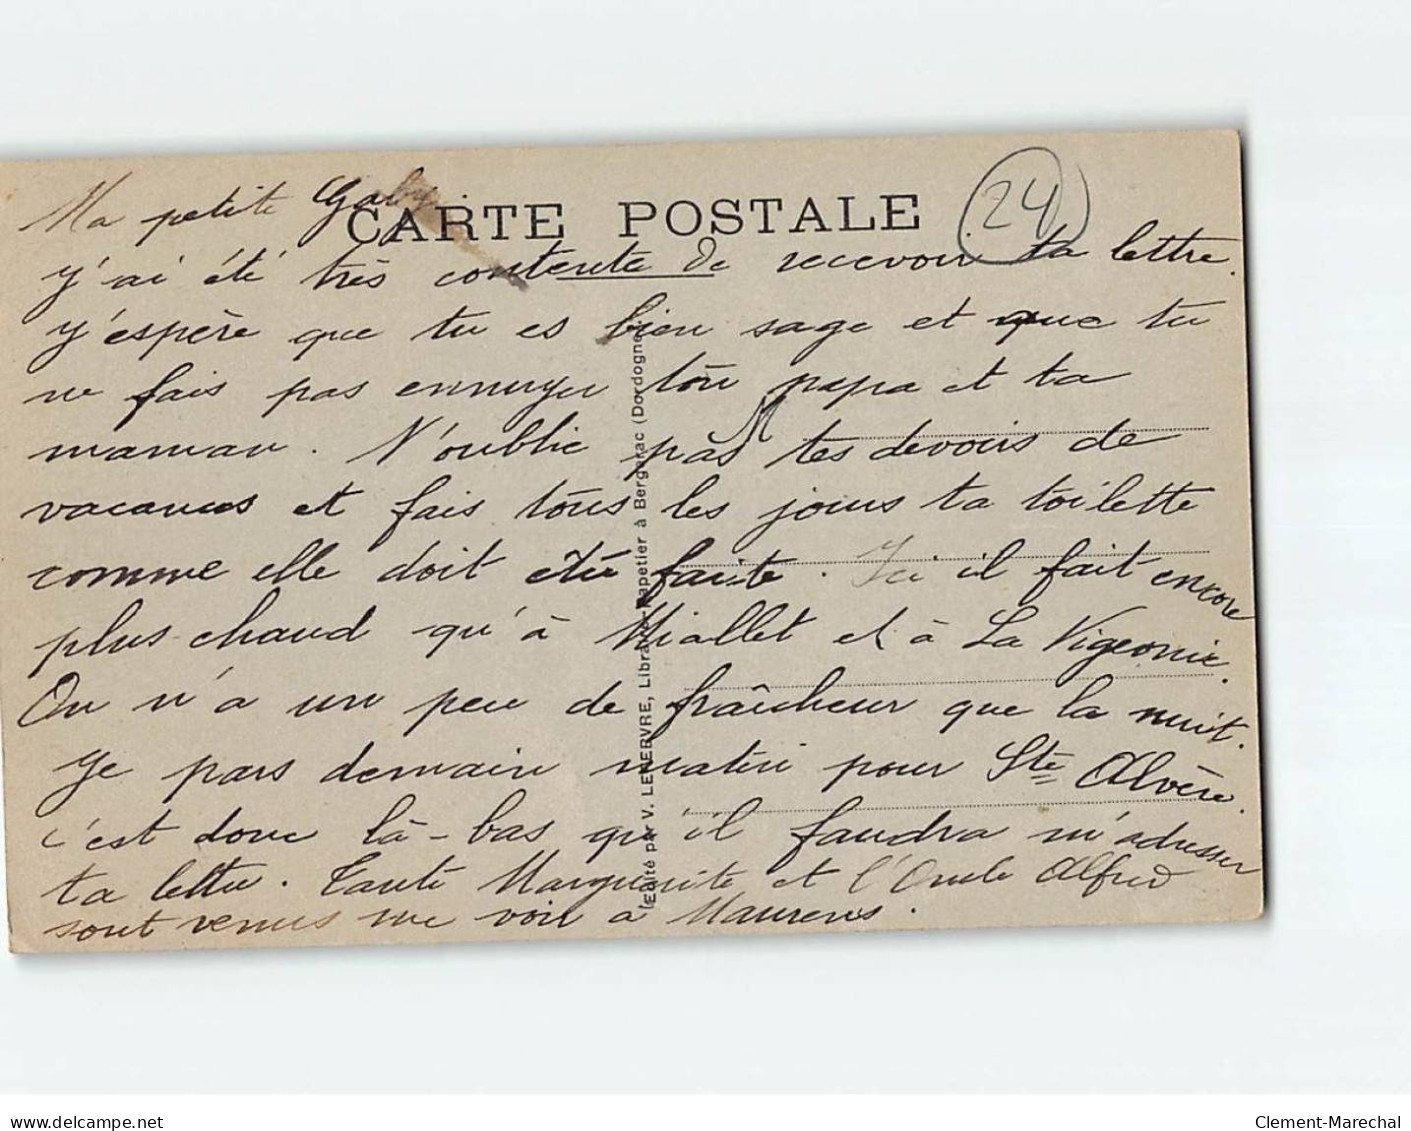 CARTE POSTALE
24
Ma petite Gaby
J'ai été très contente de recevoir ta lettre.
J'espère que tu es bien sage et que tu
ne fais pas ennuyer ton papa et ta
maman. N'oublie pas tes devoirs de
vacances et fais tous les jours ta toilette
comme elle doit être faite. Ici il fait encore
plus chaud qu'à Miallet et à La Vigeonie.
On n'a un peu de fraîcheur que la nuit.
Je pars demain matin pour Ste Alvère.
c'est donc là-bas qu'il faudra m'adresser
ta lettre. Tante Marguerite et l'Oncle Alfred
sont venus me voir à Maurens.
(Edité par V. LEHERVRE, Libraire-Papetier à Bergerac (Dordogne).
delcampe.net
Clement-Marechal